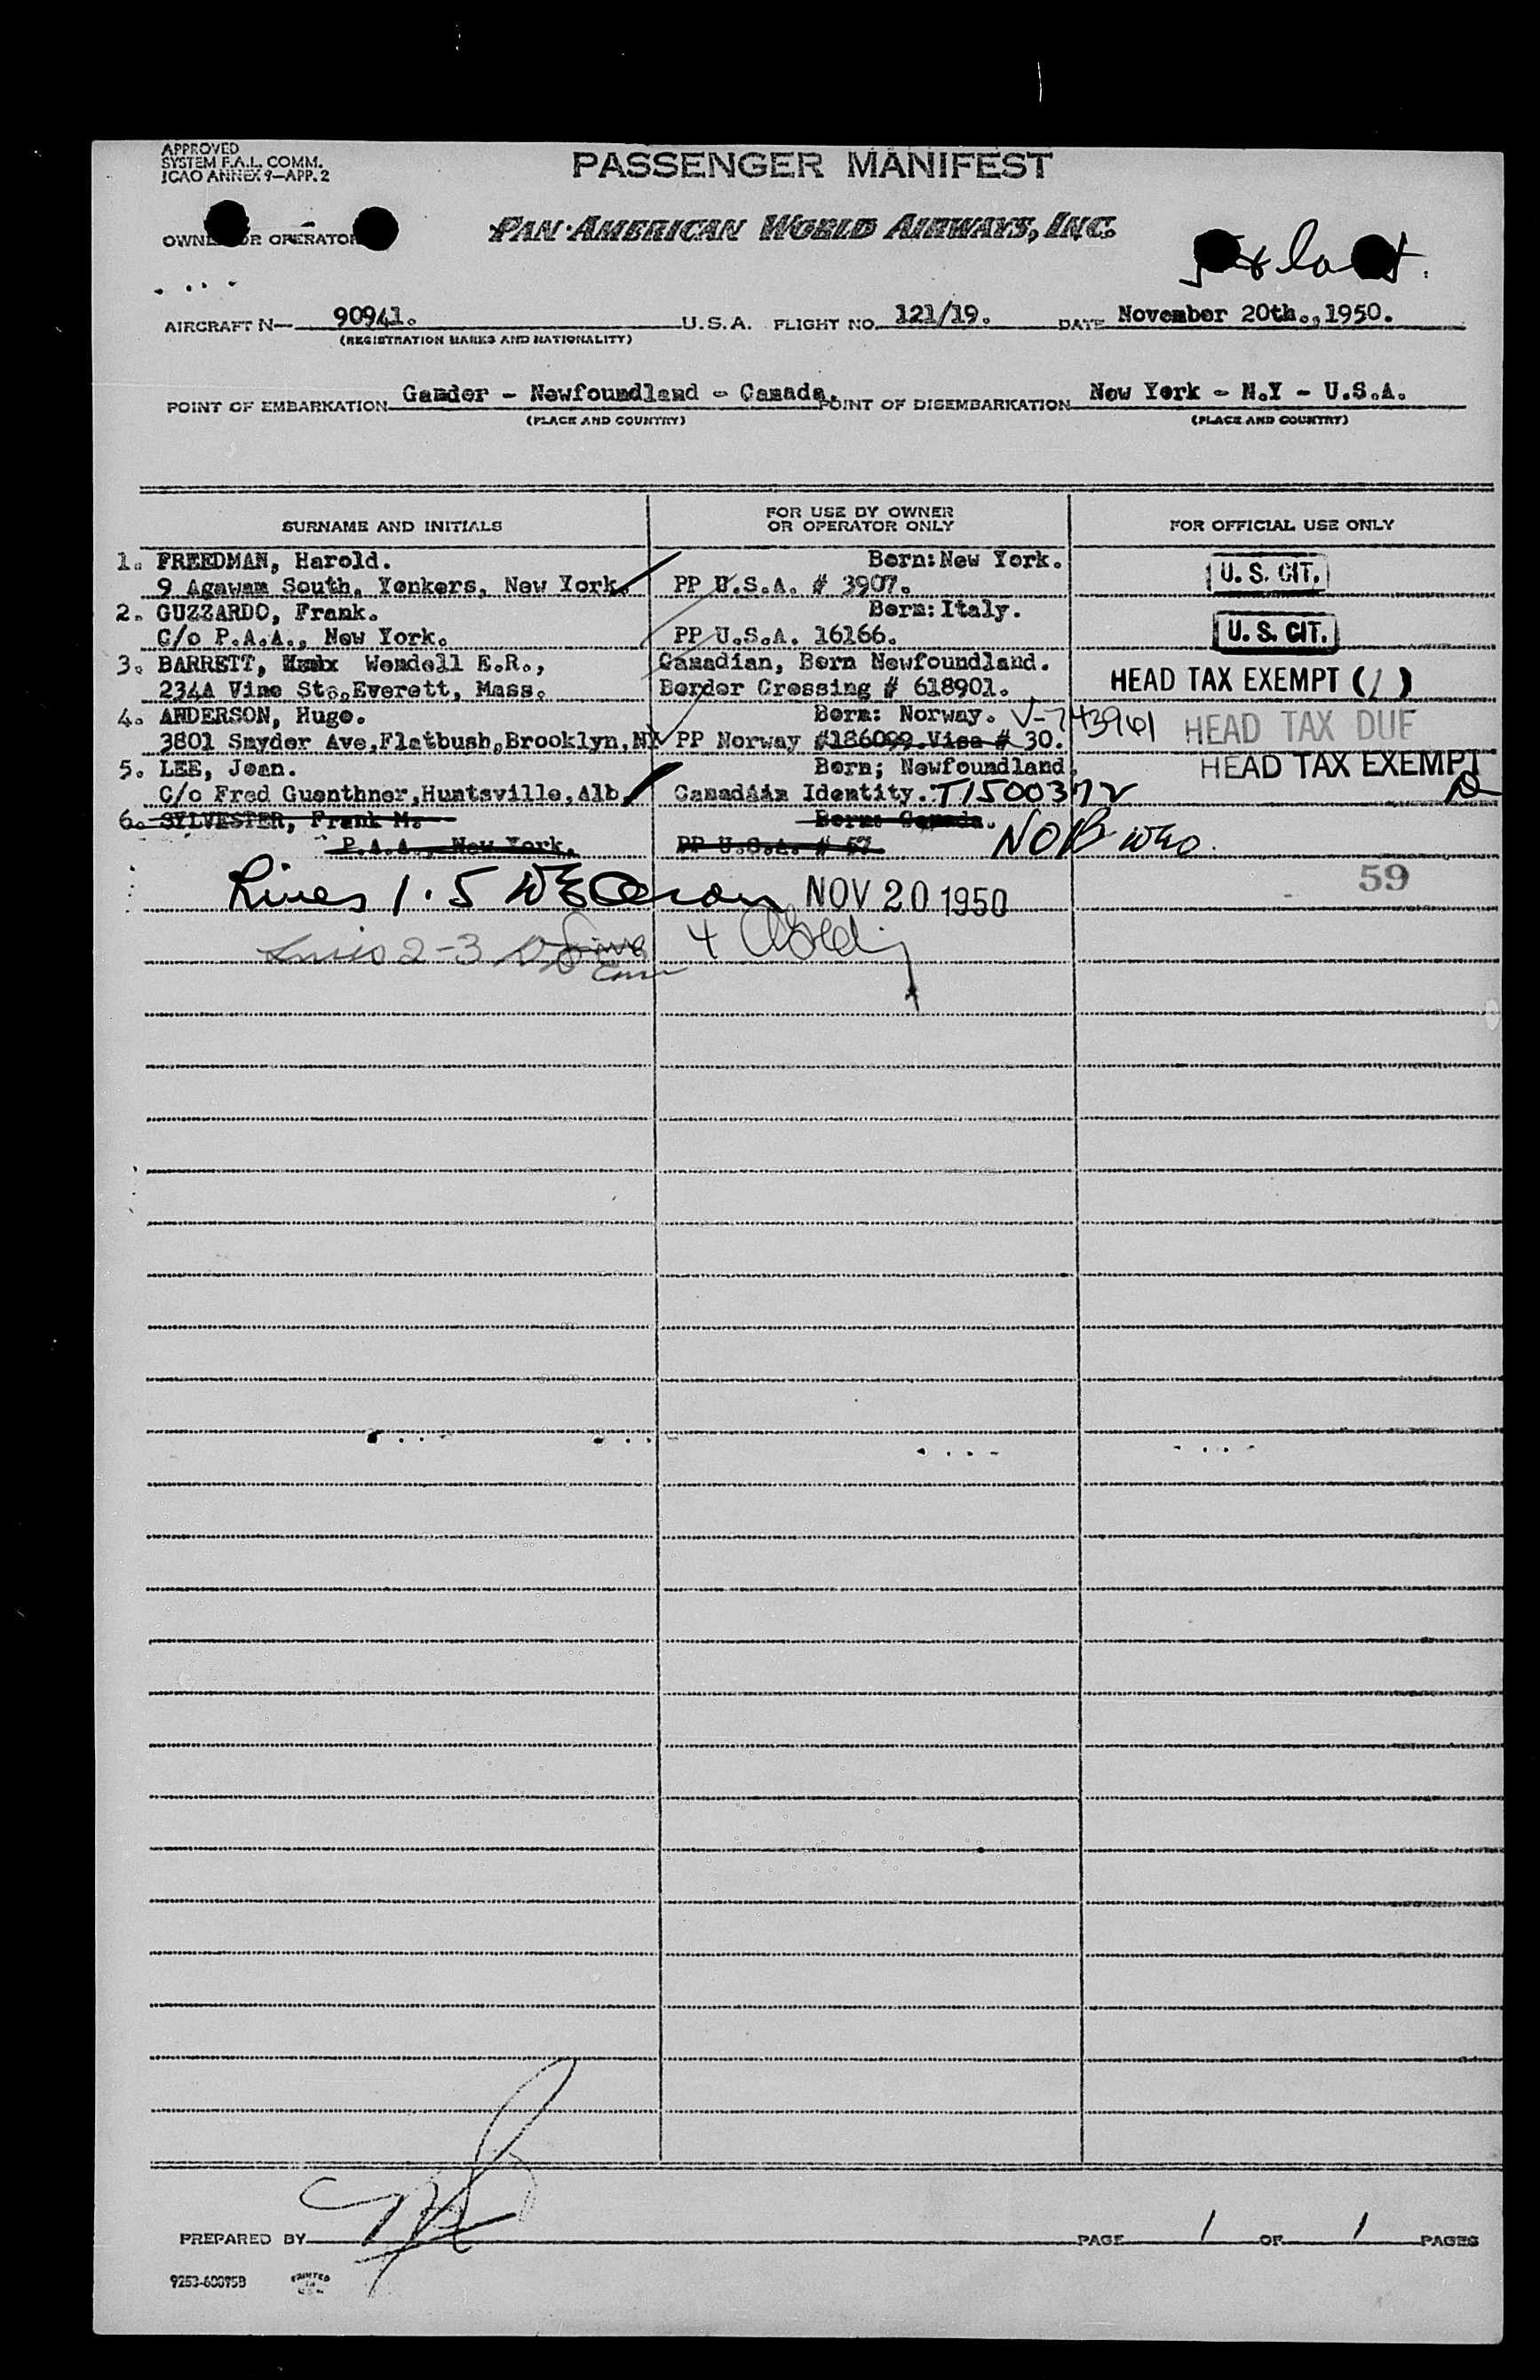 APPROVED
SYSTEM F.A.L. COMM.
ICAO ANNEX 9—APP. 2
PASSENGER MANIFEST
OWNER OR OPERATOR
PAN AMERICAN WORLD AIRWAYS, INC.
AIRCRAFT N— 90941. U.S.A. FLIGHT NO. 121/19. DATE November 20th.,1950.
(REGISTRATION MARKS AND NATIONALITY)
POINT OF EMBARKATION Gander - Newfoundland - Canada. POINT OF DISEMBARKATION New York - N.Y - U.S.A.
(PLACE AND COUNTRY) (PLACE AND COUNTRY)
SURNAME AND INITIALS FOR USE BY OWNER OR OPERATOR ONLY FOR OFFICIAL USE ONLY
1. FREEDMAN, Harold. Born: New York. U. S. CIT.
9 Agawam South, Yonkers, New York. PP U.S.A. # 3907.
2. GUZZARDO, Frank. Born: Italy.
C/o P.A.A., New York. PP U.S.A. 16166. U. S. CIT.
3. BARRETT, Wendell E.R., Canadian, Born Newfoundland.
234A Vine St., Everett, Mass. Border Crossing # 618901. HEAD TAX EXEMPT (1)
4. ANDERSON, Hugo. Born: Norway. V-743961 HEAD TAX DUE
3801 Snyder Ave,Flatbush,Brooklyn,NY PP Norway #186099.Visa # 30.
5. LEE, Jean. Born; Newfoundland. HEAD TAX EXEMPT
C/o Fred Guenthner,Huntsville,Alb. Canadian Identity. T1500372
6. SYLVESTER, Frank M. Born: Canada.
P.A.A., New York. PP U.S.A. # 57. NOB
Lines 1.5 NOV 20 1950 59
Lines 2-3
PREPARED BY PAGE 1 OF 1 PAGES
9253-60075B PRINTED IN U.S.A.